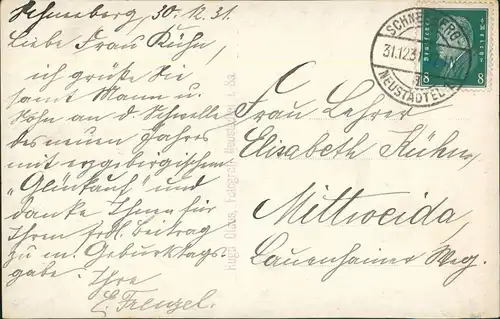 Schneeberg, 30.12.31.
Liebe Frau Kühn,
ich grüße Sie
samt Mann u.
Sohn an d. Schwelle
des neuen Jahres
mit erzgebirgischem
„Glückauf" und
danke Ihnen für
Ihren frdl. Beitrag
zu m. Geburtstags-
gabe.
Ihre
E. Frenzel.
Hugo Claus, Fotograf, Neustädtel i. Sa.
Frau Lehrer
Elisabeth Kühn,
Mittweida,
Lauenhainer Weg.
SCHNEEBERG
31.12.31
NEUSTÄDTEL
Deutsches Reich
8 8